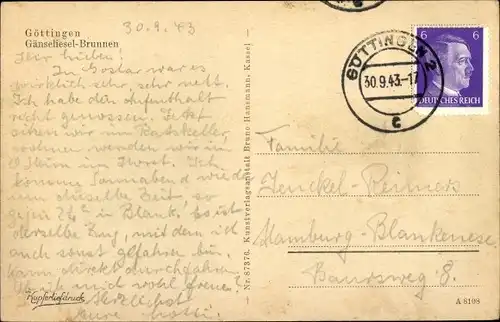 Göttingen
Gänseliesel-Brunnen
30.9.43
Ihr Lieben!
In Goslar war es
wirklich sehr, sehr nett.
Ich habe den Aufenthalt
recht genossen. Jetzt
sitzen wir im Ratskeller,
wohnen werden wir im
Ich
komme Sonnabend wieder
um dieselbe Zeit, so
gegen in Blank. Es ist
derselbe Zug, mit dem ich
auch sonst gefahren bin,
kann direkt durchfahren.
mich wohl freuen!
Herzlichst
Eure
Kupfertiefdruck
Nr. 87376. Kunstverlagsanstalt Bruno Hansmann, Kassel
GÖTTINGEN 2
30.9.43.-17
c
6 6
DEUTSCHES REICH
Familie
Jenckel-Reimers
Hamburg-Blankenese
Baursweg 8.
A 8108